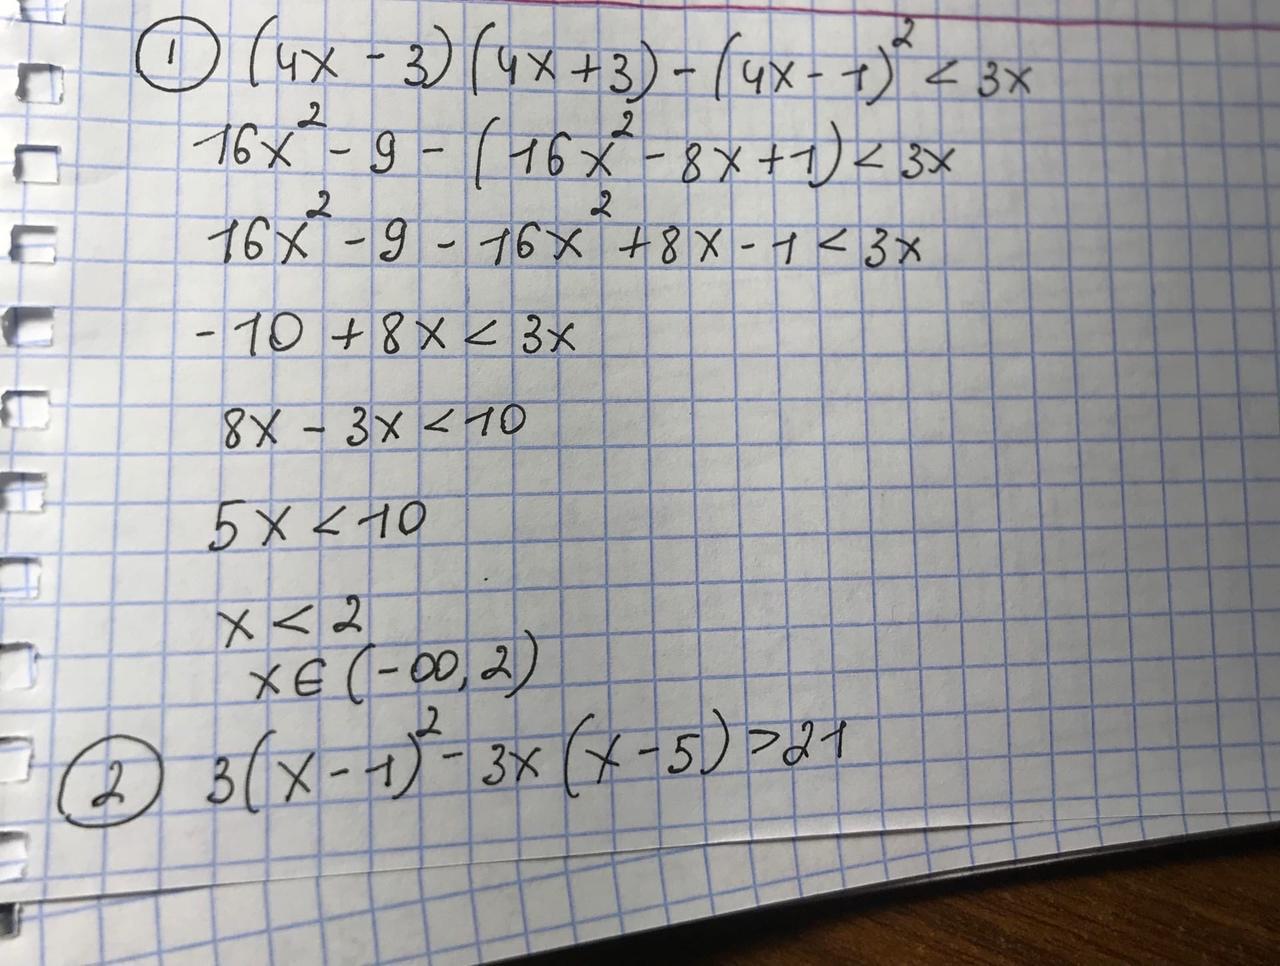 ① (4x - 3)(4x + 3) - (4x - 1)² < 3x
16x² - 9 - (16x² - 8x + 1) < 3x
16x² - 9 - 16x² + 8x - 1 < 3x
- 10 + 8x < 3x
8x - 3x < 10
5x < 10
x < 2
x ∈ (-∞, 2)
② 3(x - 1)² - 3x(x - 5) > 21